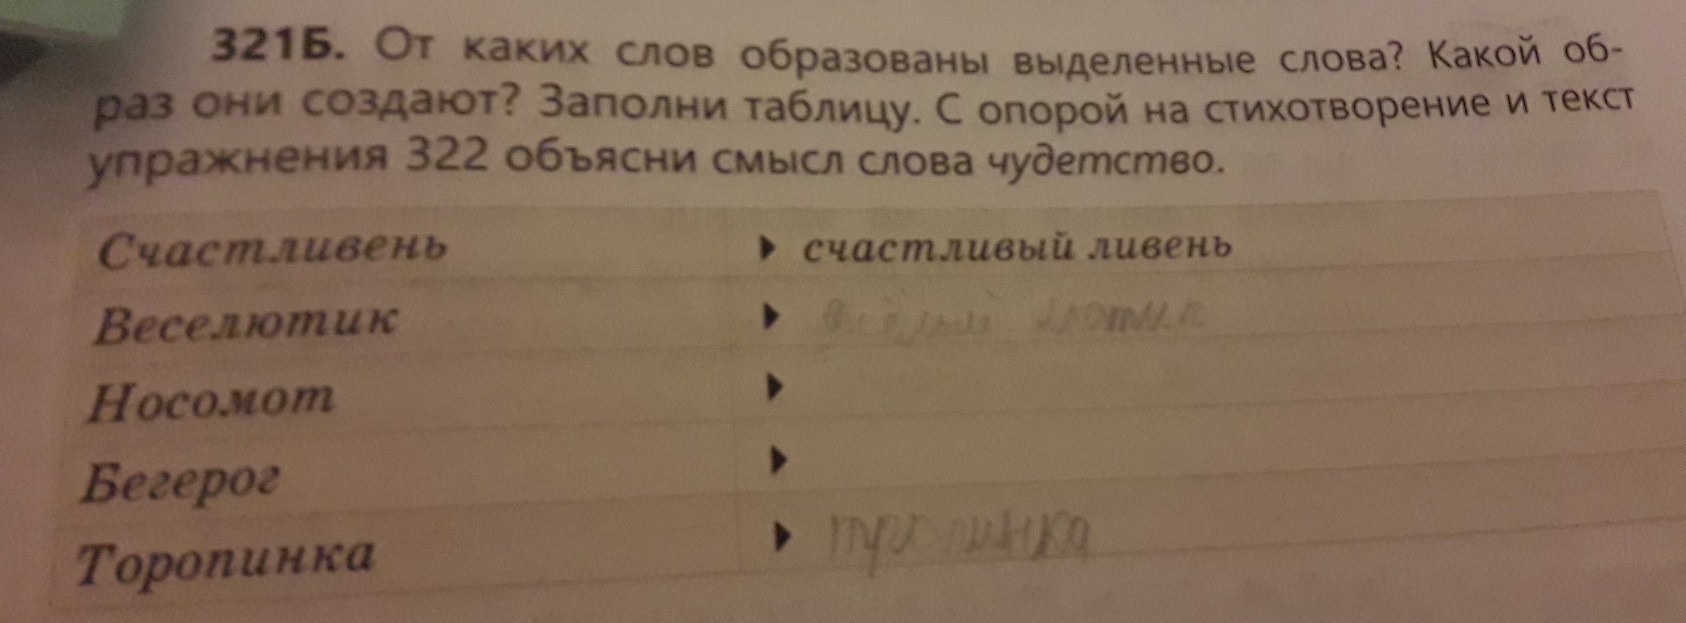 321Б. От каких слов образованы выделенные слова? Какой об-
раз они создают? Заполни таблицу. С опорой на стихотворение и текст
упражнения 322 объясни смысл слова чудетство.
Счастливень ▸ счастливый ливень
Веселютик ▸ лютик
Носомот ▸
Бегерог ▸
Торопинка ▸ тропинка